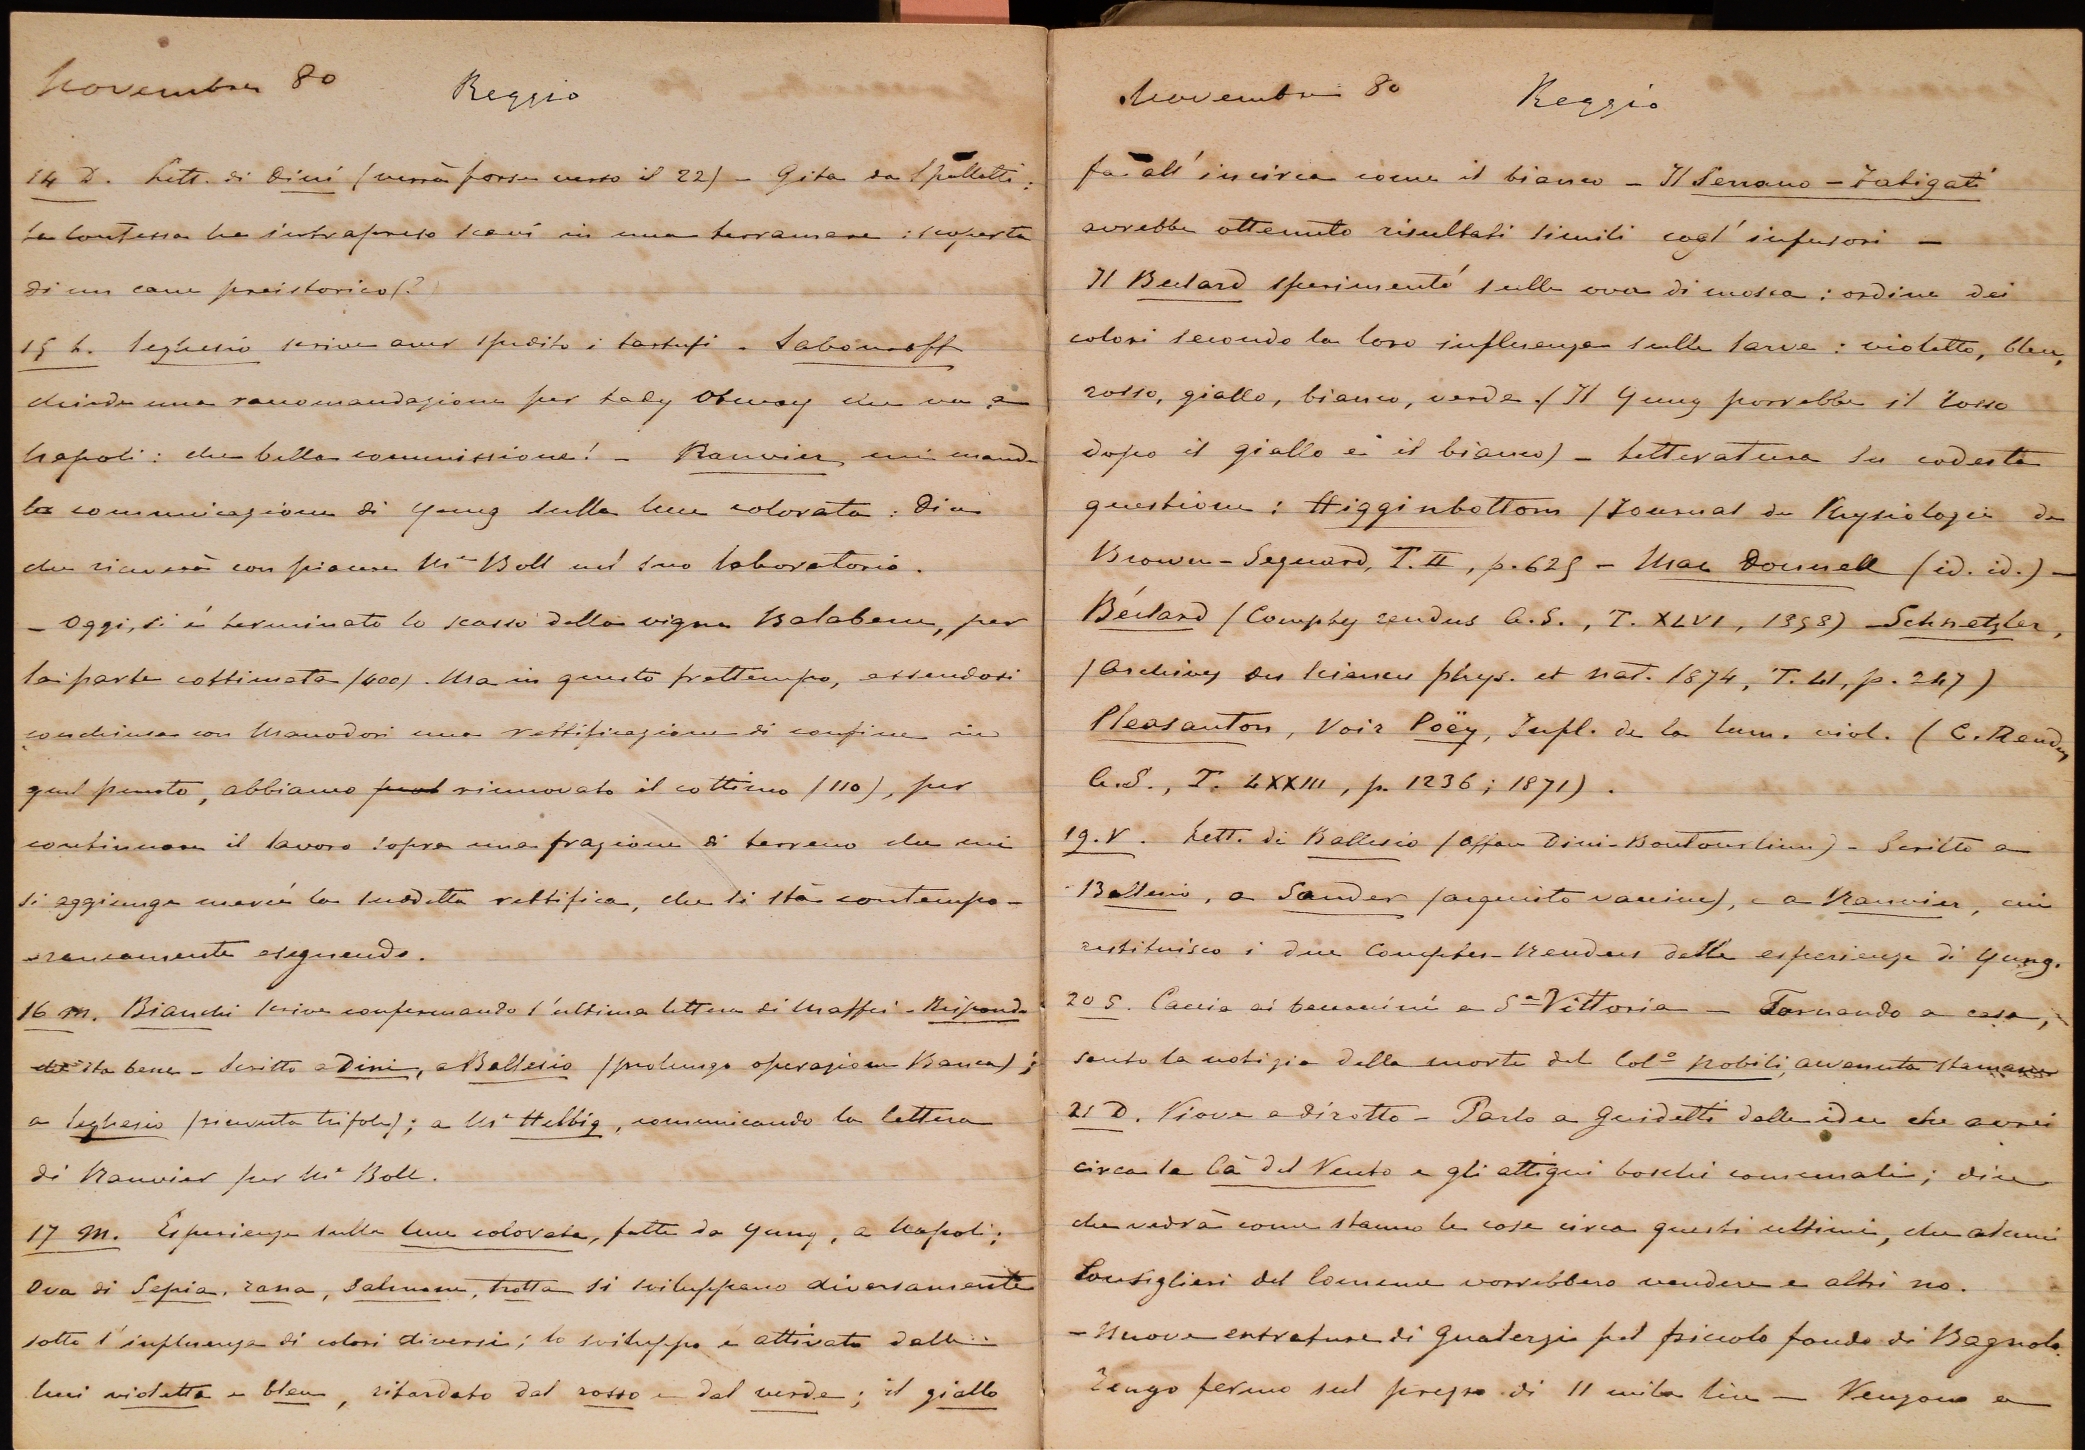 Novembre 80 Reggio
14 D. Lett. di Dini (verrà forse verso il 22) – Gita da Spalletti:
la Contessa ha intrapreso scavi in una terramare: scoperta
di un cane preistorico (?)
15 L. Seghesio scrive aver spedito i tartufi – Sabouroff
chiede una raccomandazione per Lady Otway che va a
Napoli: che bella commissione! – Ranvier mi manda
la comunicazione di Yung sulla luce colorata: dice
che riceverà con piacere Mr Boll nel suo laboratorio.
– Oggi, si è terminato lo scasso della vigna Balabene, per
la parte cottimata (400). Ma in questo frattempo, essendosi
conchiusa con Manodori una rettificazione di confine in
quel punto, abbiamo rinnovato il cottimo (110), per
continuare il lavoro sopra una frazione di terreno che mi
si aggiunge mercé la suddetta rettifica, che si stà contempo-
raneamente eseguendo.
16 M. Bianchi scrive confermando l'ultima lettera di Maffei – Rispondo
sta bene – Scritto a Dini, a Ballesio (prolungo operazione Banca);
a Seghesio (ricevuta trifole); a Mr Helbig, comunicando la lettera
di Ranvier per Mr Boll.
17 M. Esperienze sulla luce colorata, fatte da Yung, a Napoli;
Ova di Sepia, rana, salmone, trotta si sviluppano diversamente
sotto l'influenza di colori diversi; lo sviluppo è attivato dalle
luci violetta e bleu, ritardato dal rosso e dal verde; il giallo
Novembre 80 Reggio
fa all'incirca come il bianco – Il Serrano-Fatigati
avrebbe ottenuto risultati simili cogl'infusori –
Il Beclard sperimentò sulle ova di mosca: ordine dei
colori secondo la loro influenza sulle larve: violetto, bleu,
rosso, giallo, bianco, verde. (Il Yung porrebbe il rosso
dopo il giallo e il bianco) – Letteratura su codesta
questione: Higginbottom (Journal de Physiologie de
Brown-Sequard, T. II, p. 625 – Mac Donnell (id. id.) –
Béclard (Comptes rendus A.S., T. XLVI, 1858) – Schnetzler,
(Archives des Sciences phys. et nat. 1874, T. LI, p. 247)
Pleasanton, Voir Poëy, Infl. de la lum. viol. (C. Rendus
A.S., T. LXXIII, p. 1236; 1871).
19. V. Lett. di Ballesio (affare Dini-Boutourline) – Scritto a
Ballesio, a Sander (acquisto vaccine), e a Ranvier, cui
restituisco i due Comptes-Rendus delle esperienze di Yung.
20 S. Caccia ai beccaccini a Sa Vittoria – Tornando a casa,
sento la notizia della morte del Colo Nobili, avvenuta stamane
21 D. Piove a dirotto – Parlo a Guidetti delle idee che avrei
circa la Cà del Vento e gli attigui boschi comunali; dice
che vedrà come stanno le cose circa questi ultimi, che alcuni
Consiglieri del Comune vorrebbero vendere e altri no.
– Nuove entrature di Gualerzi pel piccolo fondo di Bagnolo.
Tengo fermo sul prezzo di 11 mila lire – Vengono a